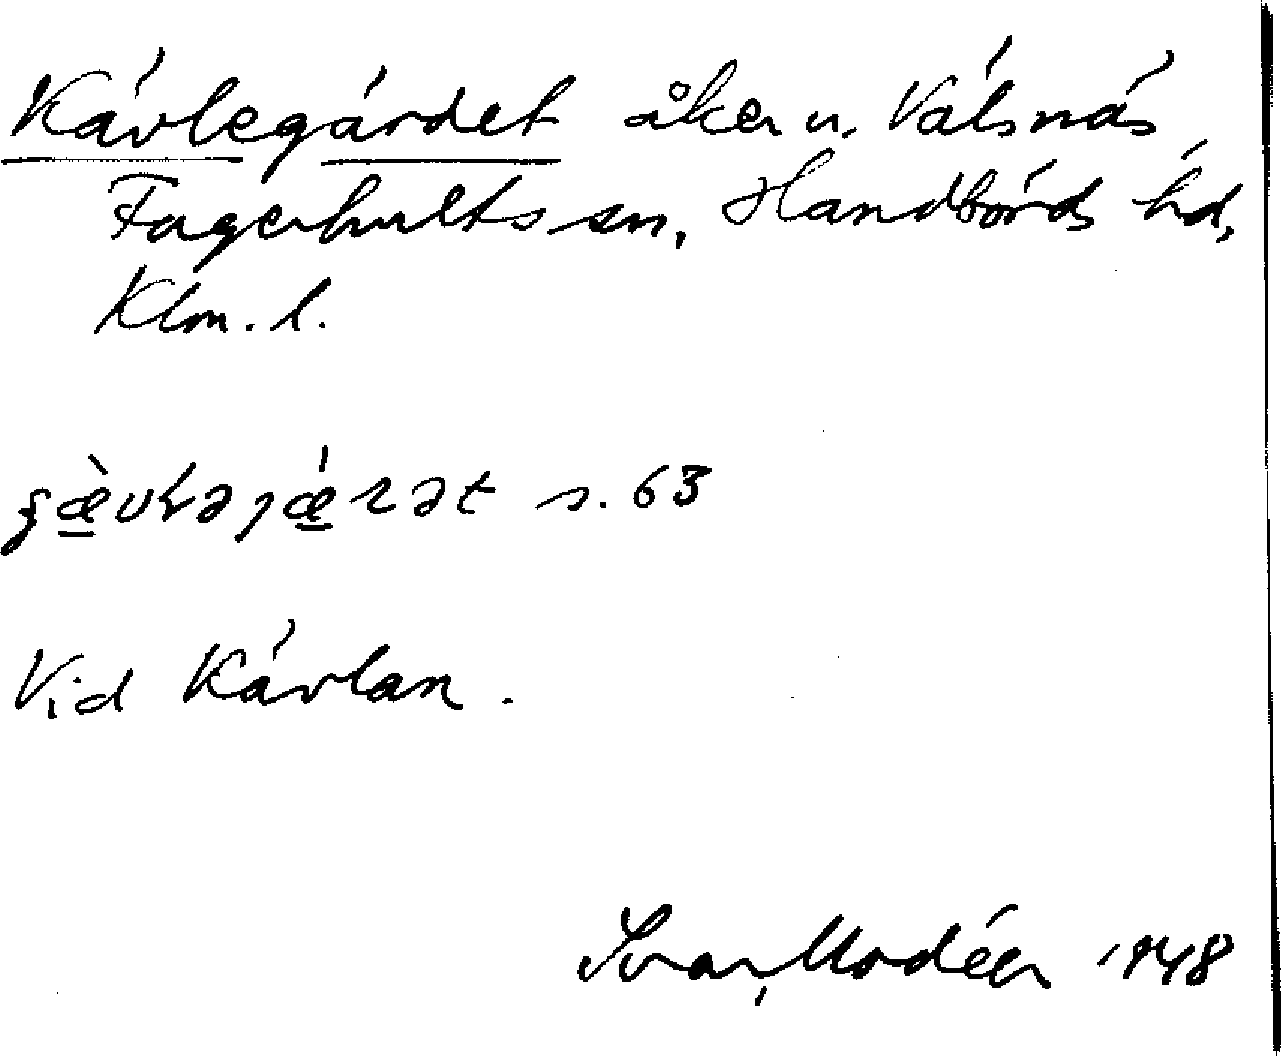 Kävlegärdet åker u. Välsnäs
Fagerhults sn, Handbörds hd,
Klm. l.
s. 63
Vid Kävlan.
Ivar Modéer 1948